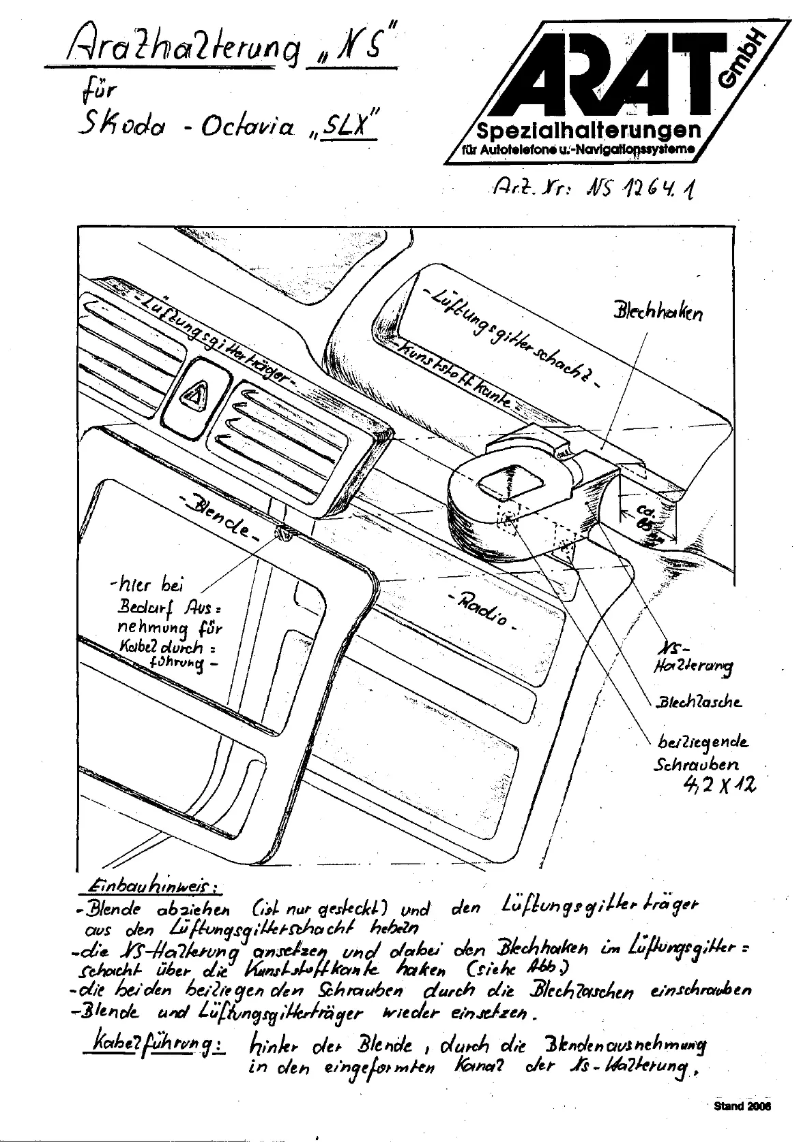 Arathalterung „NS"
für
Skoda - Octavia „SLX"
ARAT GmbH
Spezialhalterungen
für Autotelefone u.-Navigationssysteme
Art. Nr: NS 1264.1
-Lüftungsgitterträger-
-Lüftungsgitterschacht-
-Kunststoffkante-
Blechhaken
ca.
-Blende-
-hier bei
Bedarf Aus=
nehmung für
Kabeldurch=
führung-
-Radio-
NS-
Halterung
Blechlasche
beiliegende
Schrauben
4,2 X 12
Einbauhinweis:
-Blende abziehen (ist nur gesteckt) und den Lüftungsgitterträger
aus den Lüftungsgitterschacht hebeln
-die NS-Halterung ansetzen und dabei den Blechhaken im Lüftungsgitter=
schacht über die Kunststoffkante haken (siehe Abb.)
-die beiden beiliegenden Schrauben durch die Blechlaschen einschrauben
-Blende und Lüftungsgitterträger wieder einsetzen.
Kabelführung: hinter der Blende, durch die Blendenausnehmung
in den eingeformten Kanal der NS-Halterung.
Stand 2006